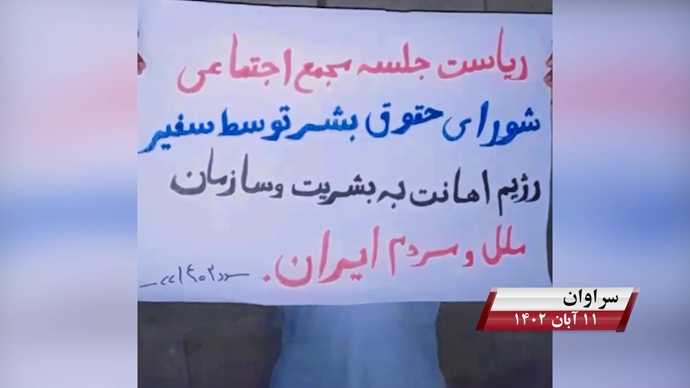 ریاست جلسه مجمع اجتماعی
شورای حقوق بشر توسط سفیر
رژیم اهانت به بشریت و سازمان
ملل و مردم ایران.
سراوان
۱۱ آبان ۱۴۰۲